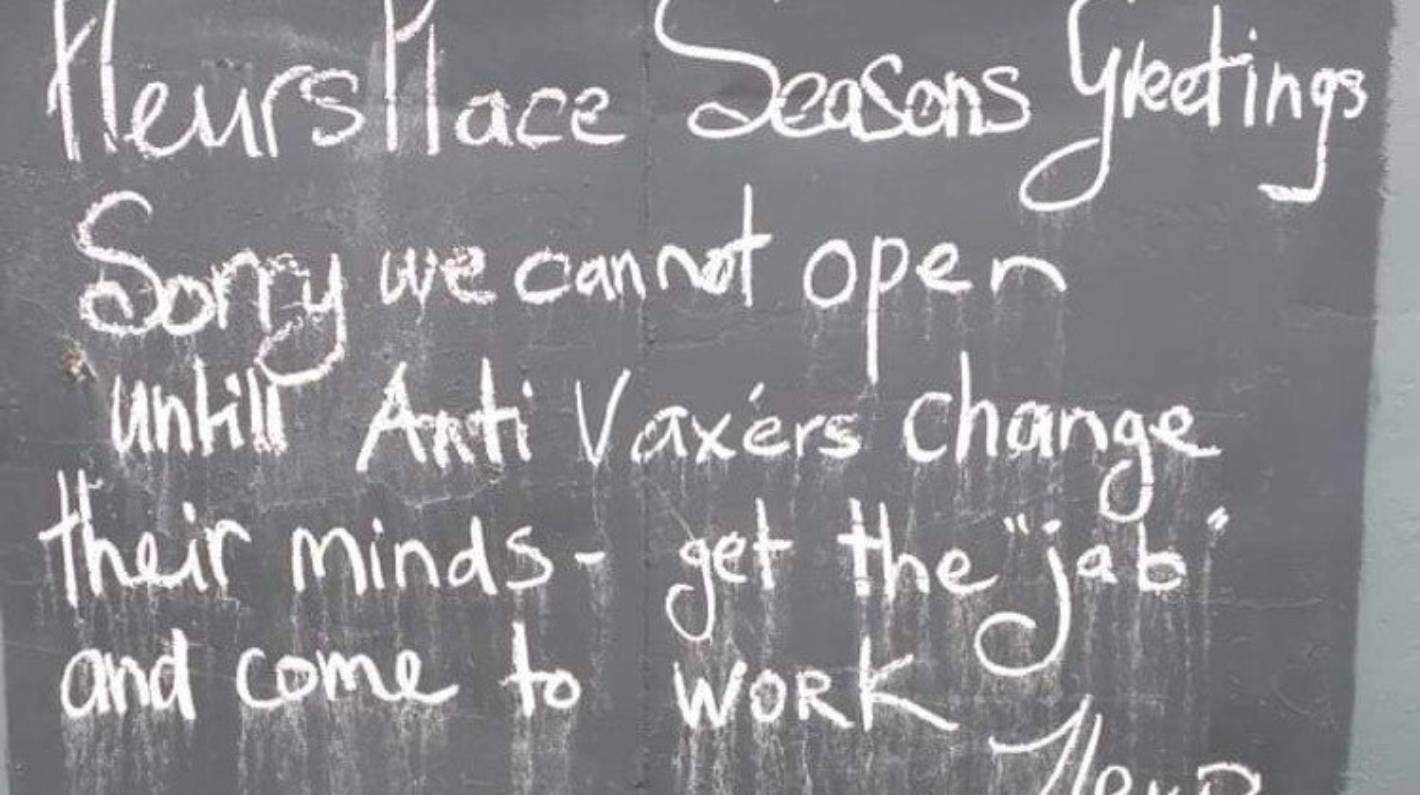 Fleurs Place Seasons Greetings
Sorry we cannot open
untill Anti Vaxérs change
their minds - get the "jab"
and come to WORK
Fleur